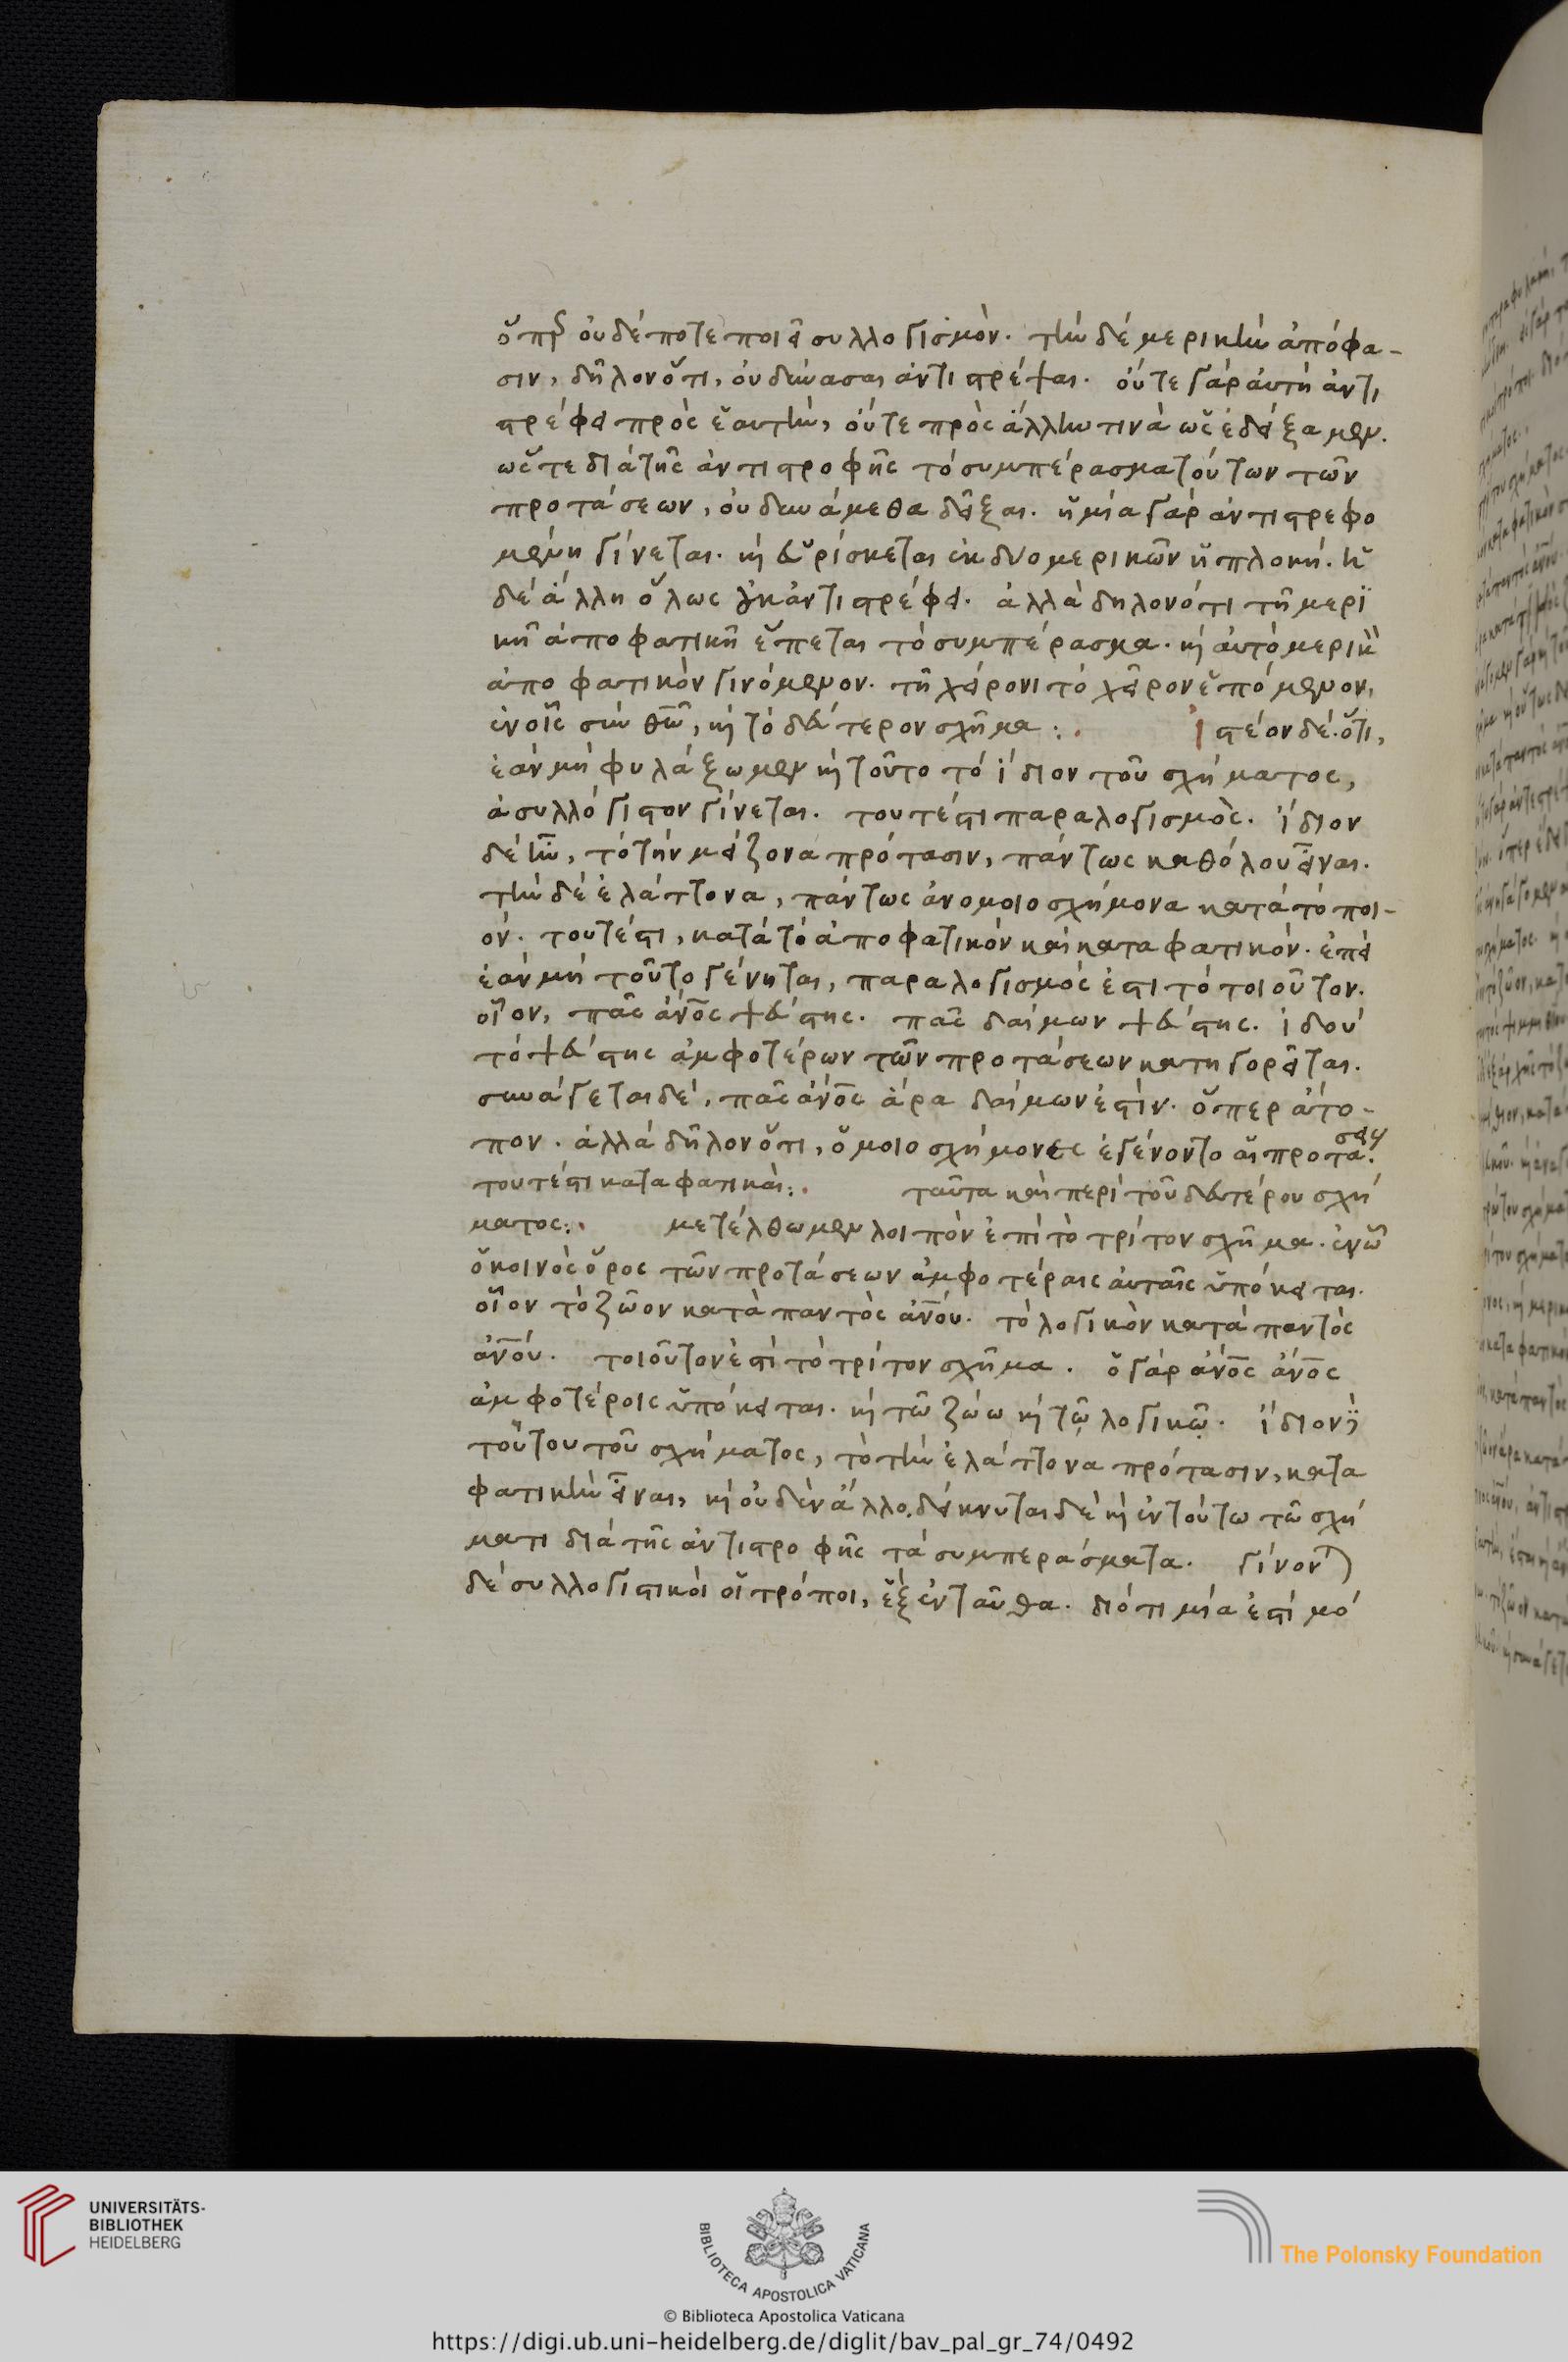 ὅπερ οὐδέποτε ποιεῖ συλλογισμόν. τὴν δὲ μερικὴν ἀπόφα-
σιν, δῆλον ὅτι, οὐ δύνασαι ἀντιστρέψαι. οὔτε γὰρ αὐτὴ ἀντι
στρέφει πρὸς ἑαυτήν, οὔτε πρὸς ἄλλην τινὰ ὡς ἐδείξαμεν.
ὥστε διὰ τῆς ἀντιστροφῆς τὸ συμπέρασμα τούτων τῶν
προτάσεων, οὐ δυνάμεθα δεῖξαι. ἡ μία γὰρ ἀντιστρεφο
μένη γίνεται. καὶ εὑρίσκεται ἐκ δύο μερικῶν ἡ πλοκή. ἡ
δὲ ἄλλη ὅλως οὐκ ἀντιστρέφει. ἀλλὰ δηλονότι τῇ μερι
κῇ ἀποφατικῇ ἕπεται τὸ συμπέρασμα. καὶ αὐτὸ μερικὸν
ἀποφατικὸν γινόμενον. τῇ χείρονι τὸ χεῖρον ἑπόμενον,
ἐν οἷς σὺν θεῷ, καὶ τὸ δεύτερον σχῆμα :. Ἰστέον δὲ. ὅτι,
ἐὰν μὴ φυλάξωμεν καὶ τοῦτο τὸ ἴδιον τοῦ σχήματος,
ἀσυλλόγιστον γίνεται. τουτέστι παραλογισμός. ἴδιον
δὲ ἦν, τὸ τὴν μείζονα πρότασιν, πάντως καθόλου εἶναι.
τὴν δὲ ἐλάττονα, πάντως ἀνομοιοσχήμονα κατὰ τὸ ποι-
όν. τουτέστι, κατὰ τὸ ἀποφατικὸν καὶ καταφατικόν. ἐπεὶ
ἐὰν μὴ τοῦτο γένηται, παραλογισμός ἐστι τὸ τοιοῦτον.
οἷον, πᾶς ἄνος ψεύστης. πᾶς δαίμων ψεύστης. ἰδού
τὸ ψεύστης ἀμφοτέρων τῶν προτάσεων κατηγορεῖται.
συνάγεται δὲ, πᾶς ἄνος ἄρα δαίμων ἐστίν. ὅπερ ἄτο-
πον. ἀλλὰ δῆλον ὅτι, ὁμοιοσχήμονες ἐγένοντο αἱ προτάσεις.
τουτέστι καταφατικαί :. ταῦτα καὶ περὶ τοῦ δευτέρου σχή
ματος :. μετέλθωμεν λοιπὸν ἐπὶ τὸ τρίτον σχῆμα. ἐν ᾧ
ὁ κοινὸς ὅρος τῶν προτάσεων ἀμφοτέραις αὐταῖς ὑπόκειται.
οἷον τὸ ζῶον κατὰ παντὸς ἀνου. τὸ λογικὸν κατὰ παντὸς
ἀνου. τοιοῦτον ἐστὶ τὸ τρίτον σχῆμα. ὁ γὰρ ἄνος ἄνος
ἀμφοτέροις ὑπόκειται. καὶ τῷ ζώω καὶ τῷ λογικῷ. ἴδιον
τούτου τοῦ σχήματος, τὸ τὴν ἐλάττονα πρότασιν, κατα
φατικὴν εἶναι, καὶ οὐδὲν ἄλλο. δείκνυται δὲ καὶ ἐν τούτω τῷ σχή
ματι διὰ τῆς ἀντιστροφῆς τὰ συμπεράσματα. γίνονται
δὲ συλλογιστικοὶ οἱ τρόποι, ἓξ ἐνταῦθα. διότι μία ἐστὶ μό
UNIVERSITÄTS-
BIBLIOTHEK
HEIDELBERG
BIBLIOTECA APOSTOLICA VATICANA
The Polonsky Foundation
© Biblioteca Apostolica Vaticana
https://digi.ub.uni-heidelberg.de/diglit/bav_pal_gr_74/0492